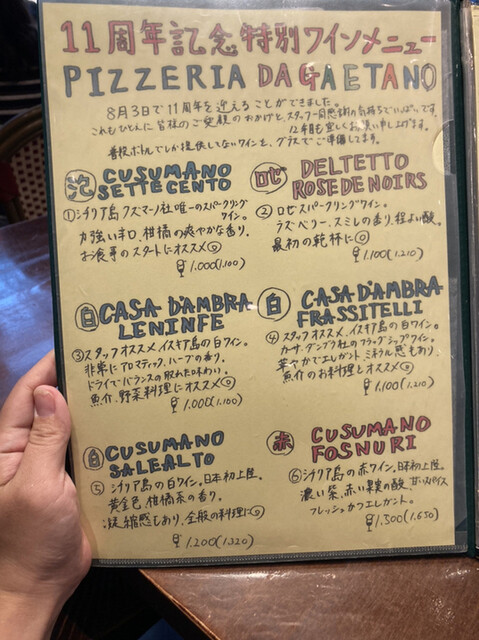 11周年記念特別ワインメニュー
PIZZERIA DA GAETANO
8月3日で11周年を迎えることができました。
これもひとえに皆様のご愛顧のおかげと、スタッフ一同感謝の気持ちでいっぱいです。
12年目も宜しくお願い申し上げます。
普段ボトルでしか提供してないワインを、グラスでご準備してます。
泡 CUSUMANO
SETTECENTO
①シチリア島クズマーノ社唯一のスパークリング
ワイン。
力強い辛口、柑橘の爽やかな香り。
お食事のスタートにオススメ◎
1.000(1.100)
ロゼ DELTETTO
ROSE DE NOIRS
②ロゼスパークリングワイン。
ラズベリー、スミレの香り、程よい酸。
最初の乾杯に◎
1.100(1.210)
白 CASA D'AMBRA
LENINFE
③スタッフオススメ、イスキア島の白ワイン。
非常にアロマティック、ハーブの香り。
ドライでバランスの取れた味わい。
魚介、野菜料理にオススメ◎
1.000(1.100)
白 CASA D'AMBRA
FRASSITELLI
④スタッフオススメ、イスキア島の白ワイン。
カーサ・ダンブラ社のフラッグシップワイン。
華やかでエレガント ミネラル感もあり。
魚介のお料理とオススメ◎
1.100(1.210)
白 CUSUMANO
SALEALTO
⑤シチリア島の白ワイン、日本初上陸。
黄金色、柑橘系の香り。
凝縮感もあり、全般の料理に◎
1.200(1.320)
赤 CUSUMANO
FOSNURI
⑥シチリア島の赤ワイン、日本初上陸。
濃い紫、赤い果実の酸、甘いスパイス
フレッシュかつエレガント。
1.500(1.650)